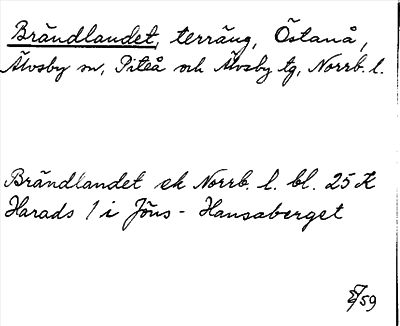 Brändlandet, terräng, Östanå,
Älvsby sn, Piteå och Älvsby tg, Norrb. l.
Brändlandet ek Norrb. l. bl. 25 K
Harads 1 i Jöns - Hansaberget
59